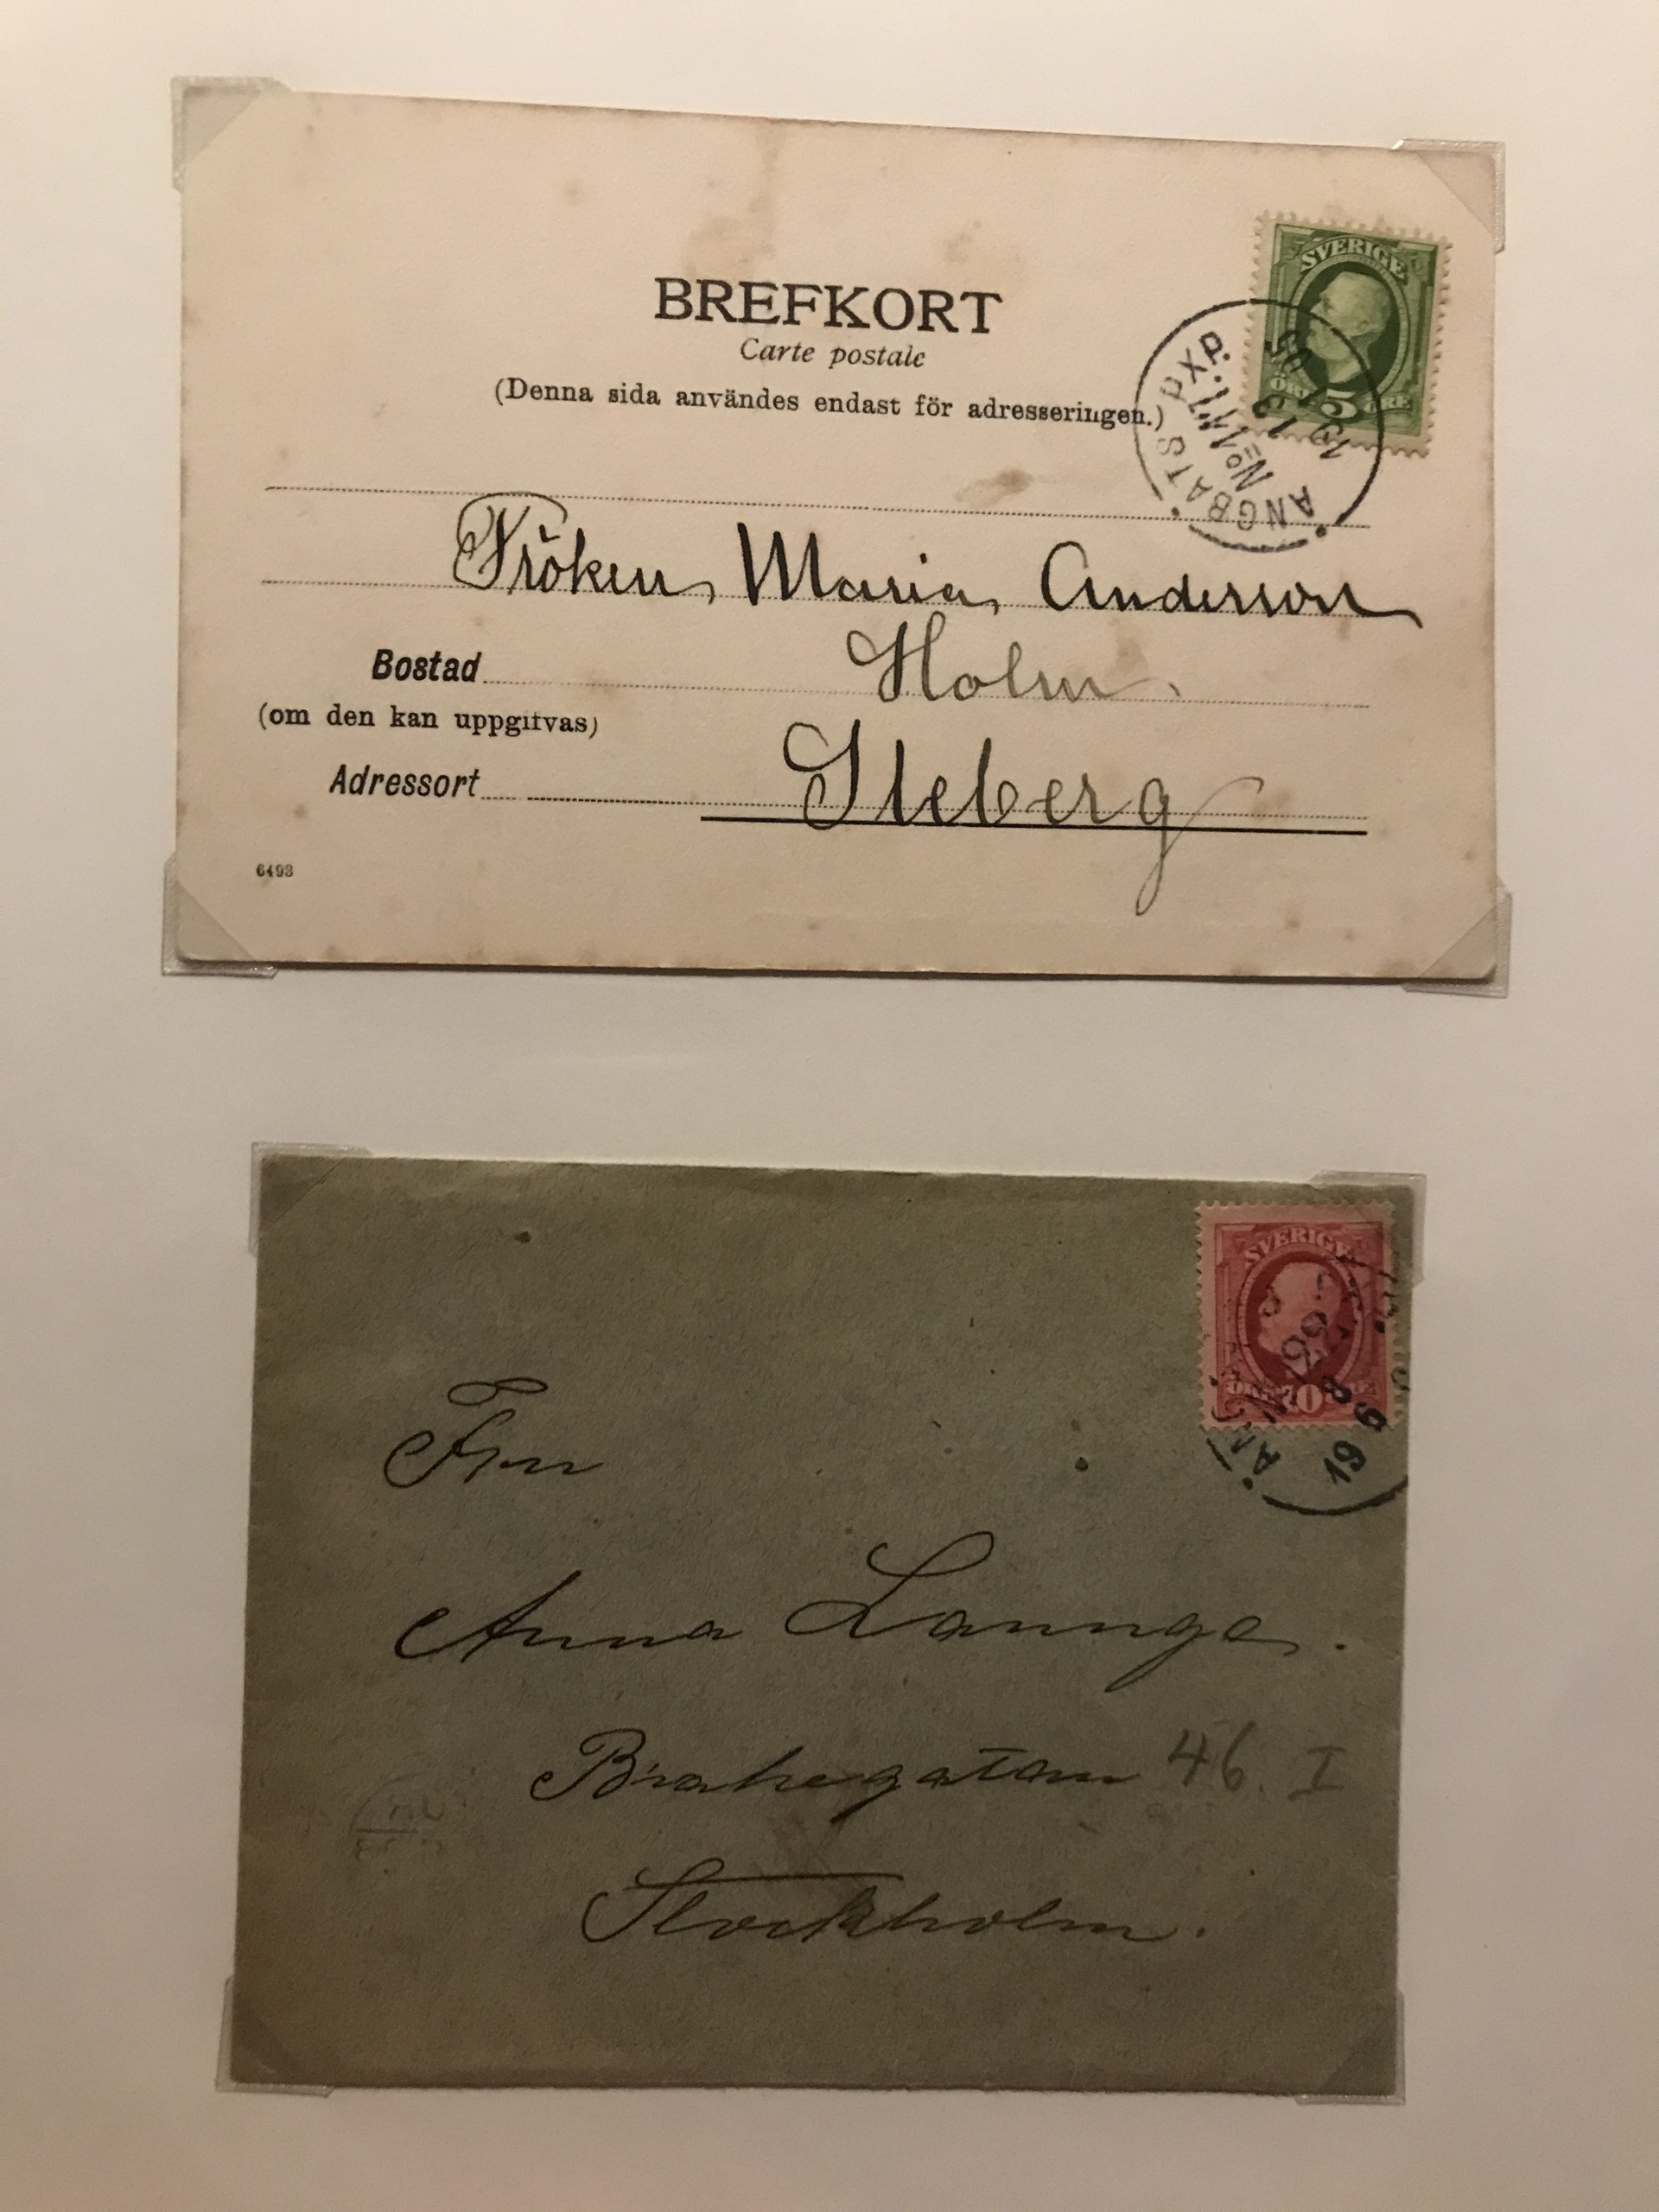 BREFKORT
Carte postale
(Denna sida användes endast för adresseringen.)
SVERIGE
ÖRE 5 ÖRE
ÅNGBÅTS PXP.
No
Fröken Maria Anderson
Bostad Holm
(om den kan uppgifvas)
Adressort Steberg
6493
SVERIGE
ÖRE 10
19
Fru
Anna
Brahegatan 46. I
Stockholm.